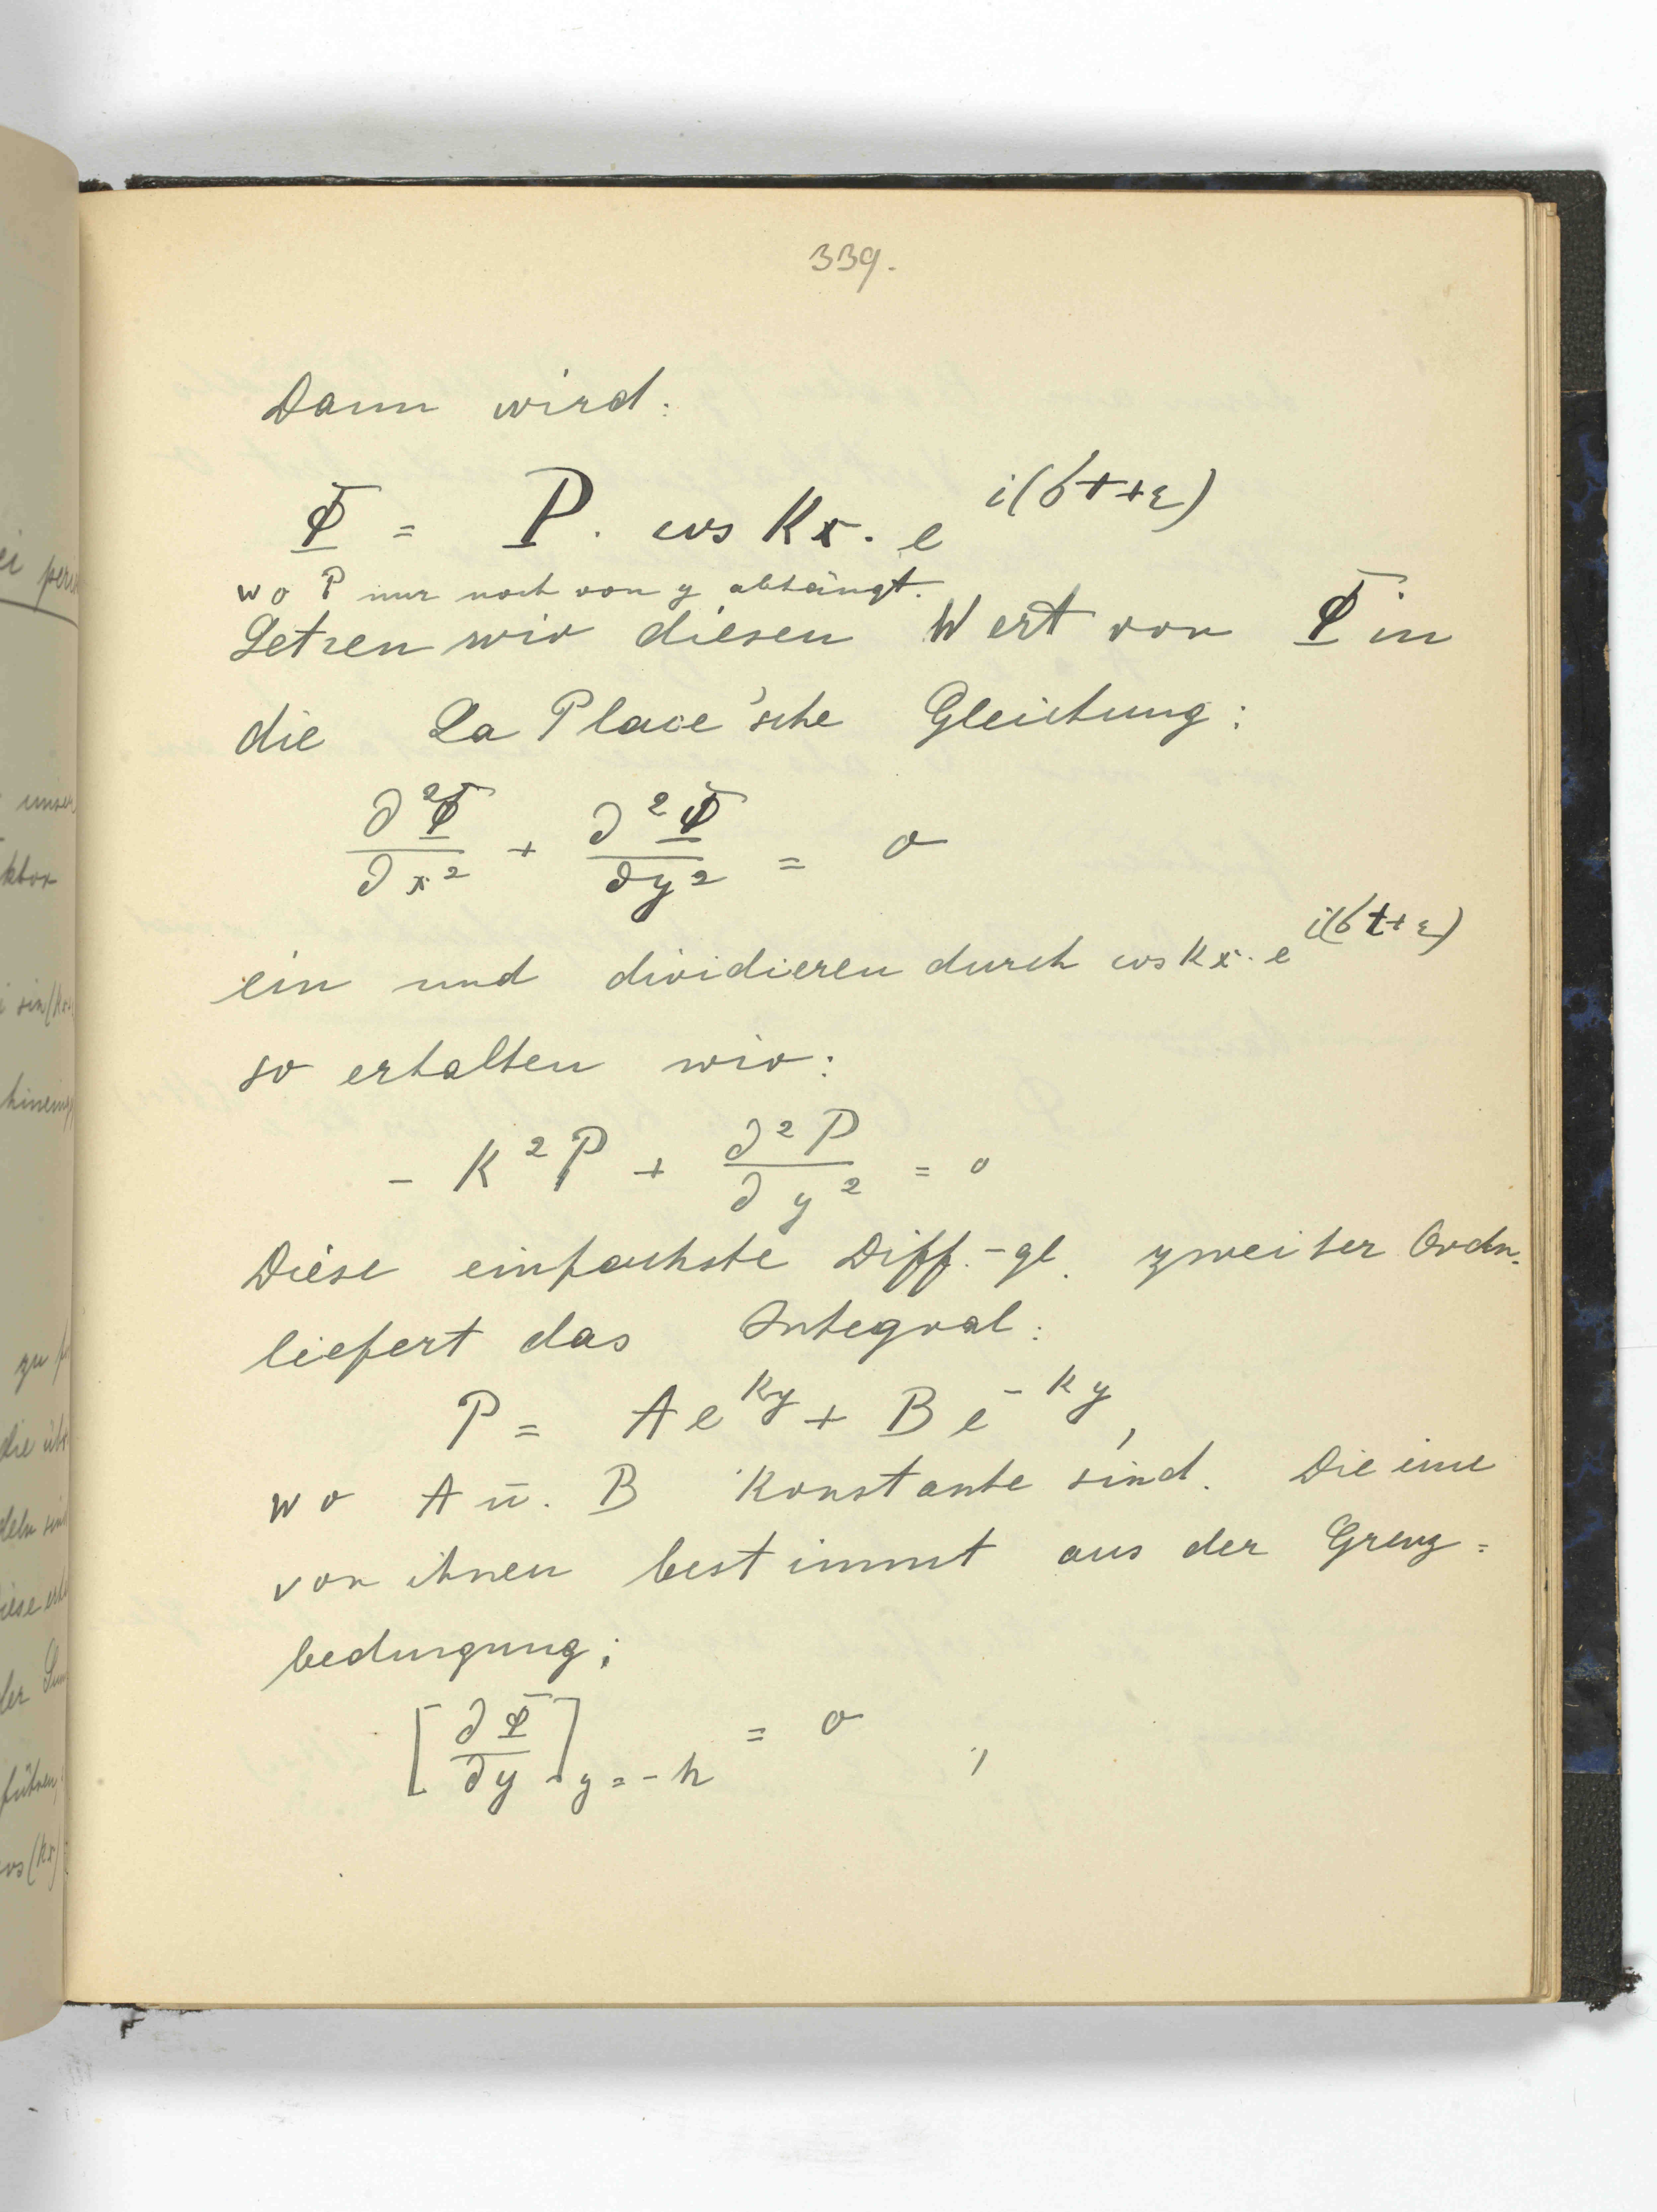 339.
Dann wird:
Φ = P. cos Kx. e^{i(σt+ε)}
wo P nur noch von y abhängt.
Setzen wir diesen Wert von Φ in
die La Place'sche Gleichung:
∂²Φ/∂x² + ∂²Φ/∂y² = 0
ein und dividieren durch cos Kx. e^{i(σt+ε)}
so erhalten wir:
- K²P + ∂²P/∂y² = 0
Diese einfachste Diff.-gl. zweiter Ordn.
liefert das Integral:
P = A e^{Ky} + B e^{-Ky},
wo A u. B Konstante sind. Die eine
von ihnen bestimmt aus der Grenz=
bedingung;
[∂Φ/∂y]_{y=-h} = 0 ;
ei
unser
ktor
i sin(Kx
zu
die
Diese
der
führen,
cos(Kx)